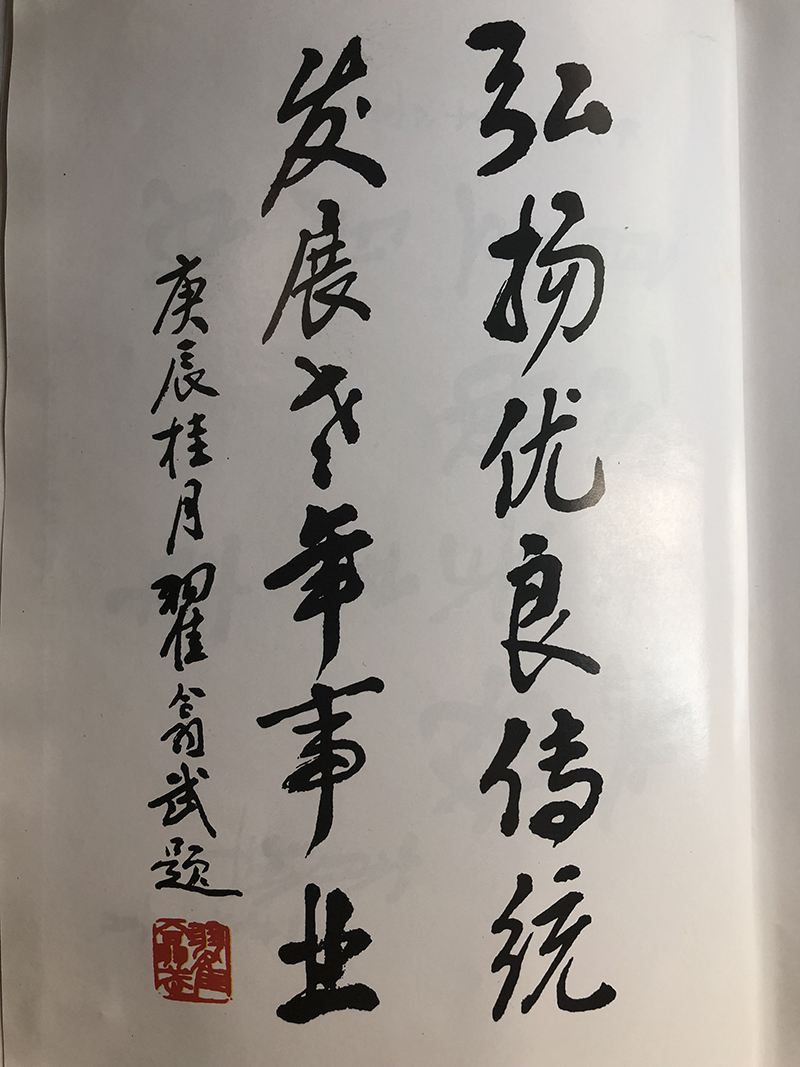 弘扬优良传统
发展老年事业
庚辰桂月翟翕武题
翟翕武